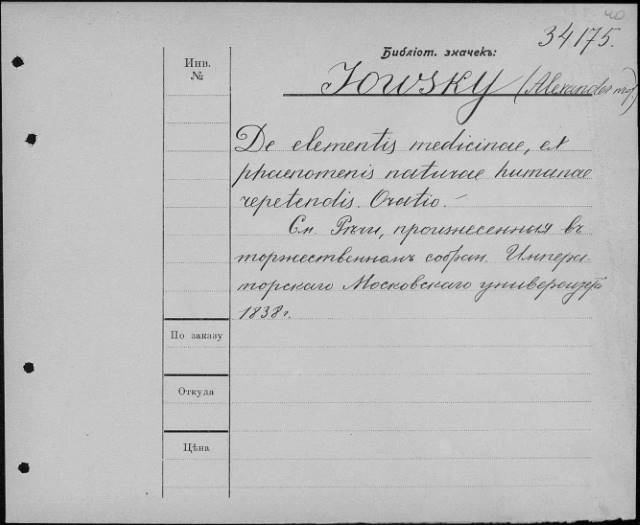 40
34175.
Библіот. значекъ:
Инв.
№
Jowsky (Alexander
De elementis medicinae, ex
phaenomenis naturae humanae
repetendis. Oratio. —
См. Рѣчи, произнесенныя въ
торжественномъ собран. Импера-
торскаго Московскаго университ.
1838 г.
По заказу
Откуда
Цѣна